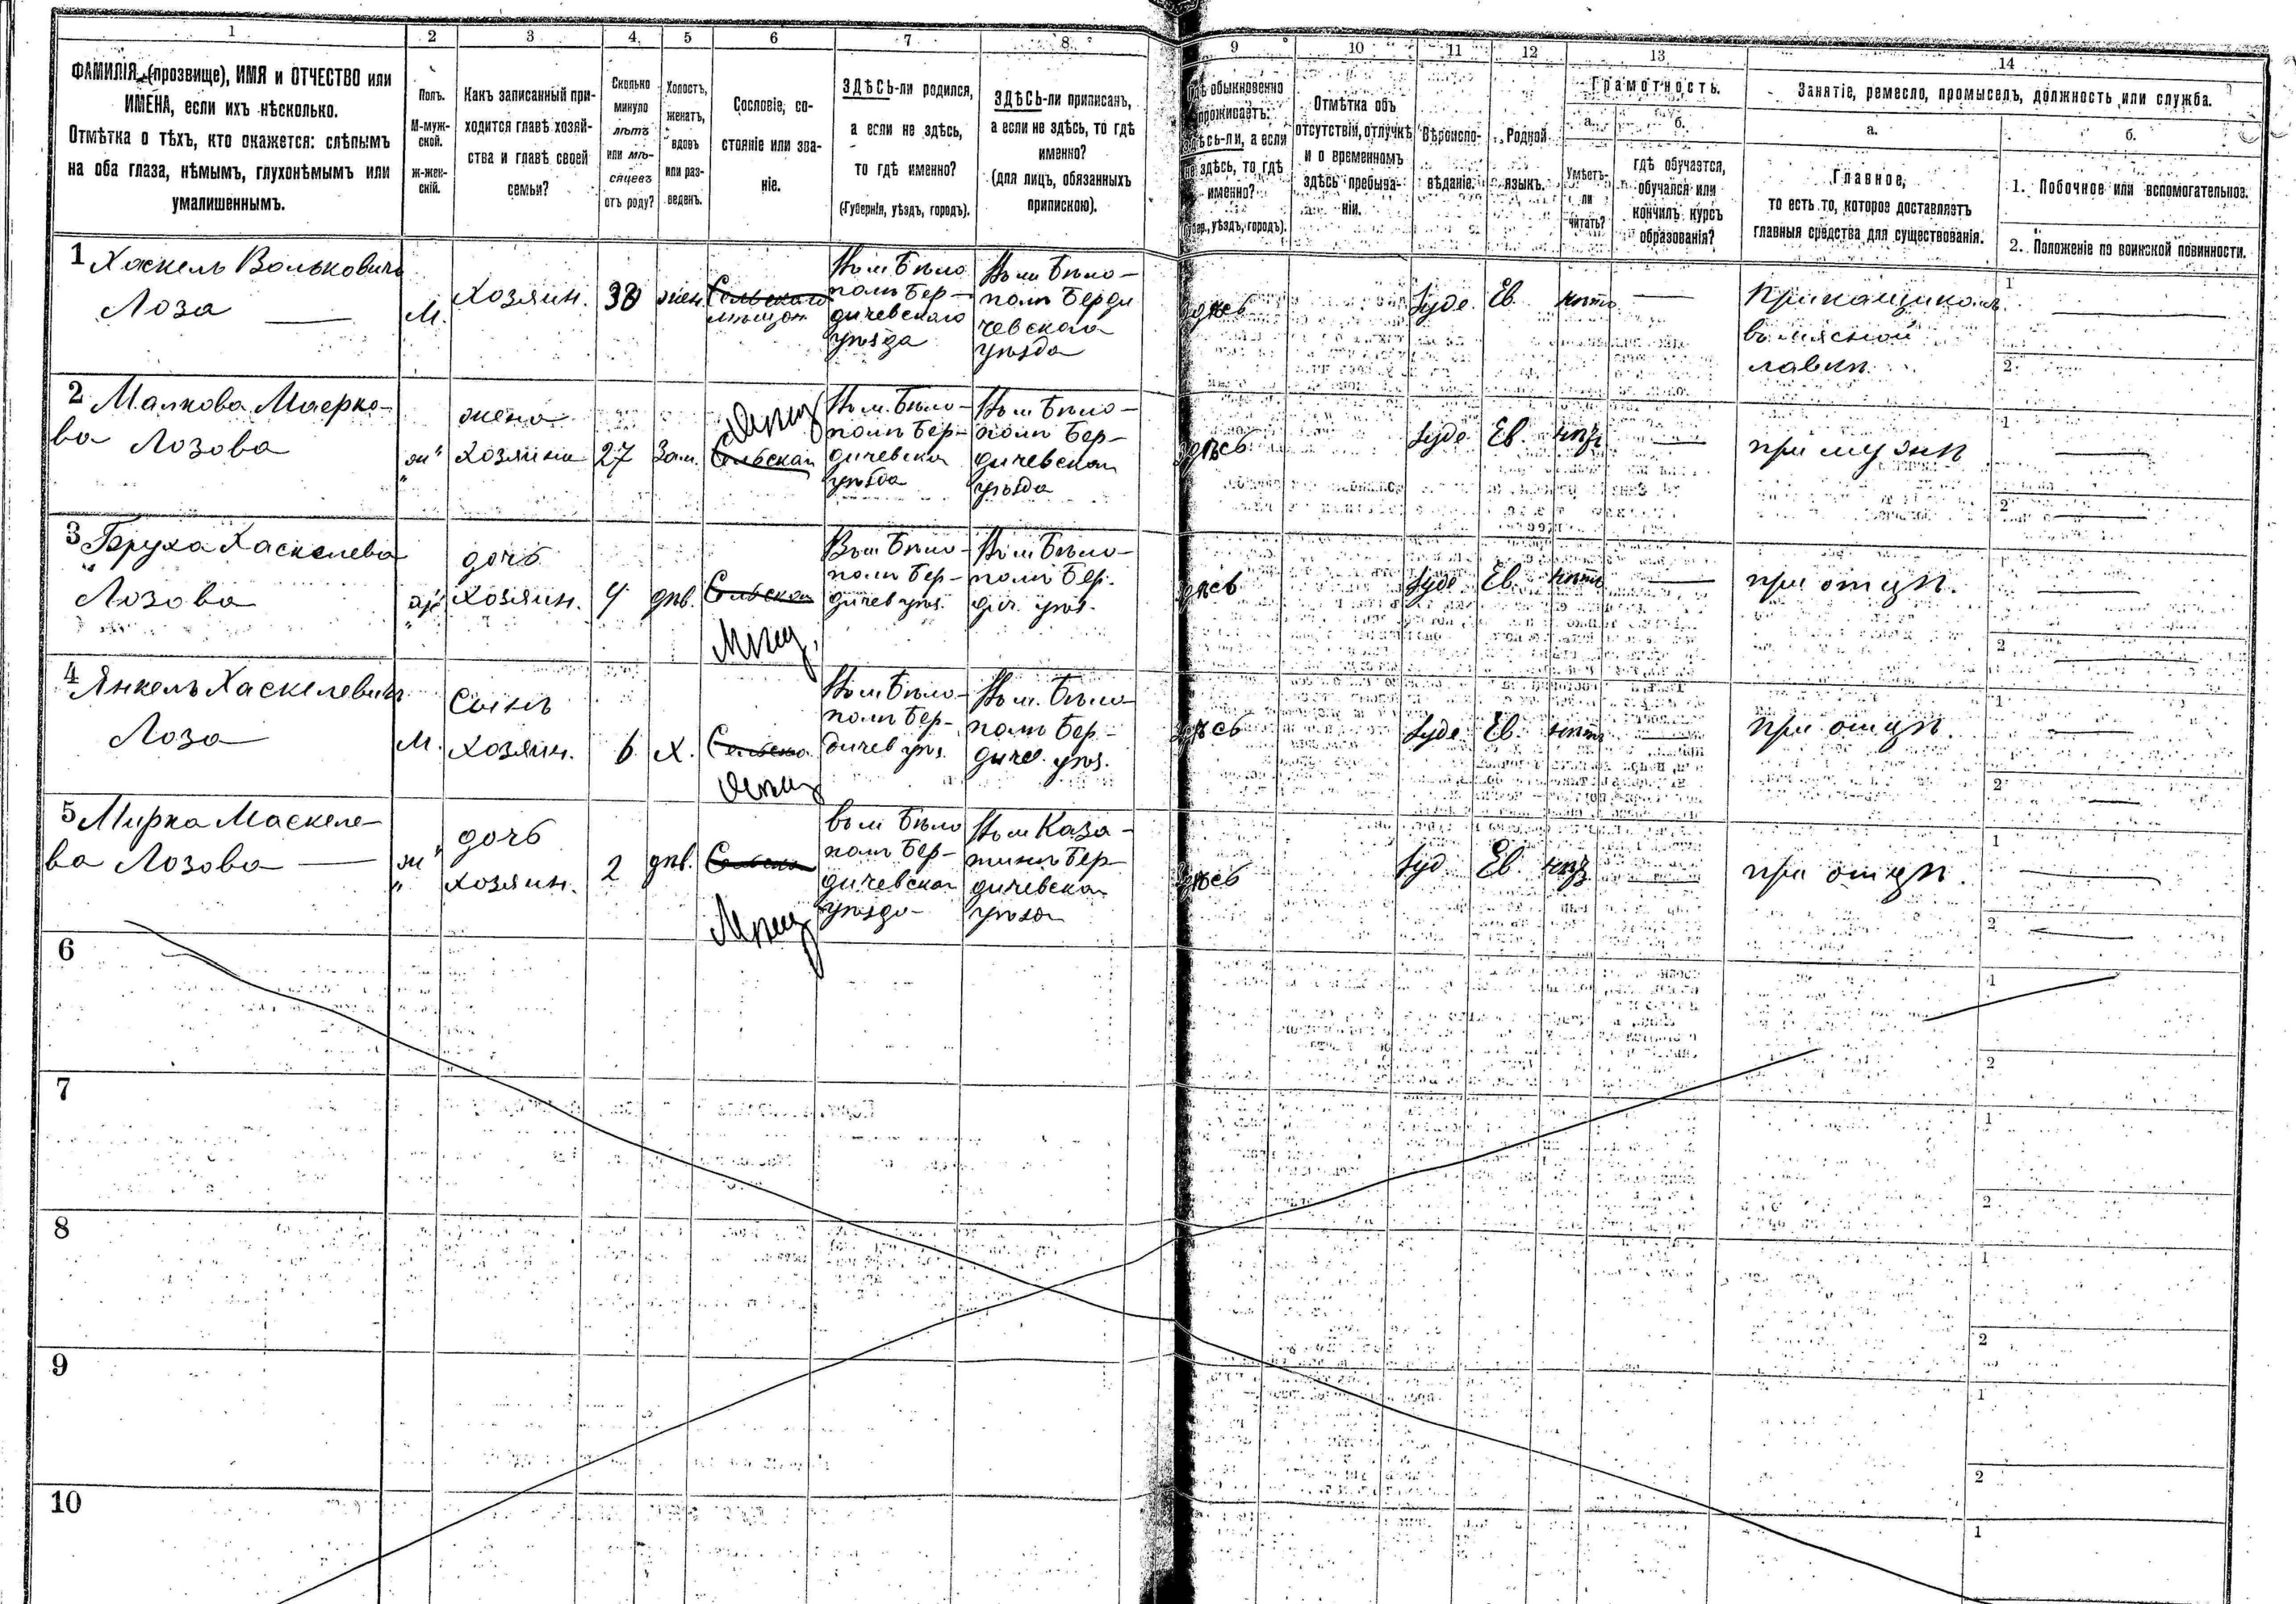 1 2 3 4 5 6 7 8 9 10 11 12 13 14
ФАМИЛІЯ (прозвище), ИМЯ и ОТЧЕСТВО или
ИМЕНА, если ихъ нѣсколько.
Отмѣтка о тѣхъ, кто окажется: слѣпымъ
на оба глаза, нѣмымъ, глухонѣмымъ или
умалишеннымъ.
Полъ.
М-муж-
ской.
ж-жен-
скій.
Какъ записанный при-
ходится главѣ хозяй-
ства и главѣ своей
семьи?
Сколько
минуло
лѣтъ
или мѣ-
сяцевъ
отъ роду?
Холостъ,
женатъ,
вдовъ
или раз-
веденъ.
Сословіе, со-
стояніе или зва-
ніе.
ЗДѢСЬ-ли родился,
а если не здѣсь,
то гдѣ именно?
(Губернія, уѣздъ, городъ).
ЗДѢСЬ-ли приписанъ,
а если не здѣсь, то гдѣ
именно?
(для лицъ, обязанныхъ
припискою).
Гдѣ обыкновенно
проживаетъ:
здѣсь-ли, а если
не здѣсь, то гдѣ
именно?
(Губер., уѣздъ, городъ).
Отмѣтка объ
отсутствіи, отлучкѣ
и о временномъ
здѣсь пребыва-
ніи.
Вѣроиспо-
вѣданіе.
Родной
языкъ.
Грамотность.
а.
Умѣетъ-
ли
читать?
б.
гдѣ обучается,
обучался или
кончилъ курсъ
образованія?
Занятіе, ремесло, промыселъ, должность или служба.
а.
Главное,
то есть то, которое доставляетъ
главныя средства для существованія.
б.
1. Побочное или вспомогательное.
2. Положеніе по воинской повинности.
1 Хаскель Вольковичъ
Лоза
М.
Хозяин.
38
жен.
Сельскаго
мѣщан
Въ м Бѣло
полѣ Бер-
дичевскаго
уѣзда
Въ м Бѣло-
полѣ Берди
чевскаго
уѣзда
здѣсь
Іуде. Ев. нѣтъ
Прикащикомъ
въ мясной
лавкѣ
1
2
2 Малкова Маерко-
ва Лозова
ж
жена
Хозяина
27
Зам.
Мѣщ
Сельская
Въ м. Бѣло-
полѣ Бер-
дичевскаго
уѣзда
Въ м Бѣло-
полѣ Бер-
дичевскаго
уѣзда
здѣсь
Іуде Ев. нѣтъ
при мужѣ
1
2
3 Бруха Хаскелева
Лозова
ж
дочь
Хозяин.
4
дѣв.
Сельская
Мѣщ.
Въ м Бѣло-
полѣ Бер-
дичев уѣз.
Въ м Бѣло-
полѣ Бер-
дич. уѣз.
здѣсь
Іуде Ев. нѣтъ
при отцѣ.
1
2
4 Янкель Хаскелевичъ
Лоза
М.
Сынъ
Хозяин.
6
Х.
Сельска
Мѣщ
Въ м Бѣло-
полѣ Бер-
дичев уѣз.
Въ м. Бѣло-
полѣ Бер-
дичев. уѣз.
здѣсь
Іуде Ев. нѣтъ
при отцѣ.
1
2
5 Мирка Маскеле-
ва Лозова
ж
дочь
хозяин.
2
дѣв.
Сельска
Мѣщ
въ м Бѣло
полѣ Бер-
дичевскаго
уѣзда
Въ м Каза-
тинъ Бер-
дичевскаго
уѣзда
здѣсь
Іуд. Ев. нѣтъ
при отцѣ.
1
2
6
1
2
7
1
2
8
1
2
9
1
2
10
1